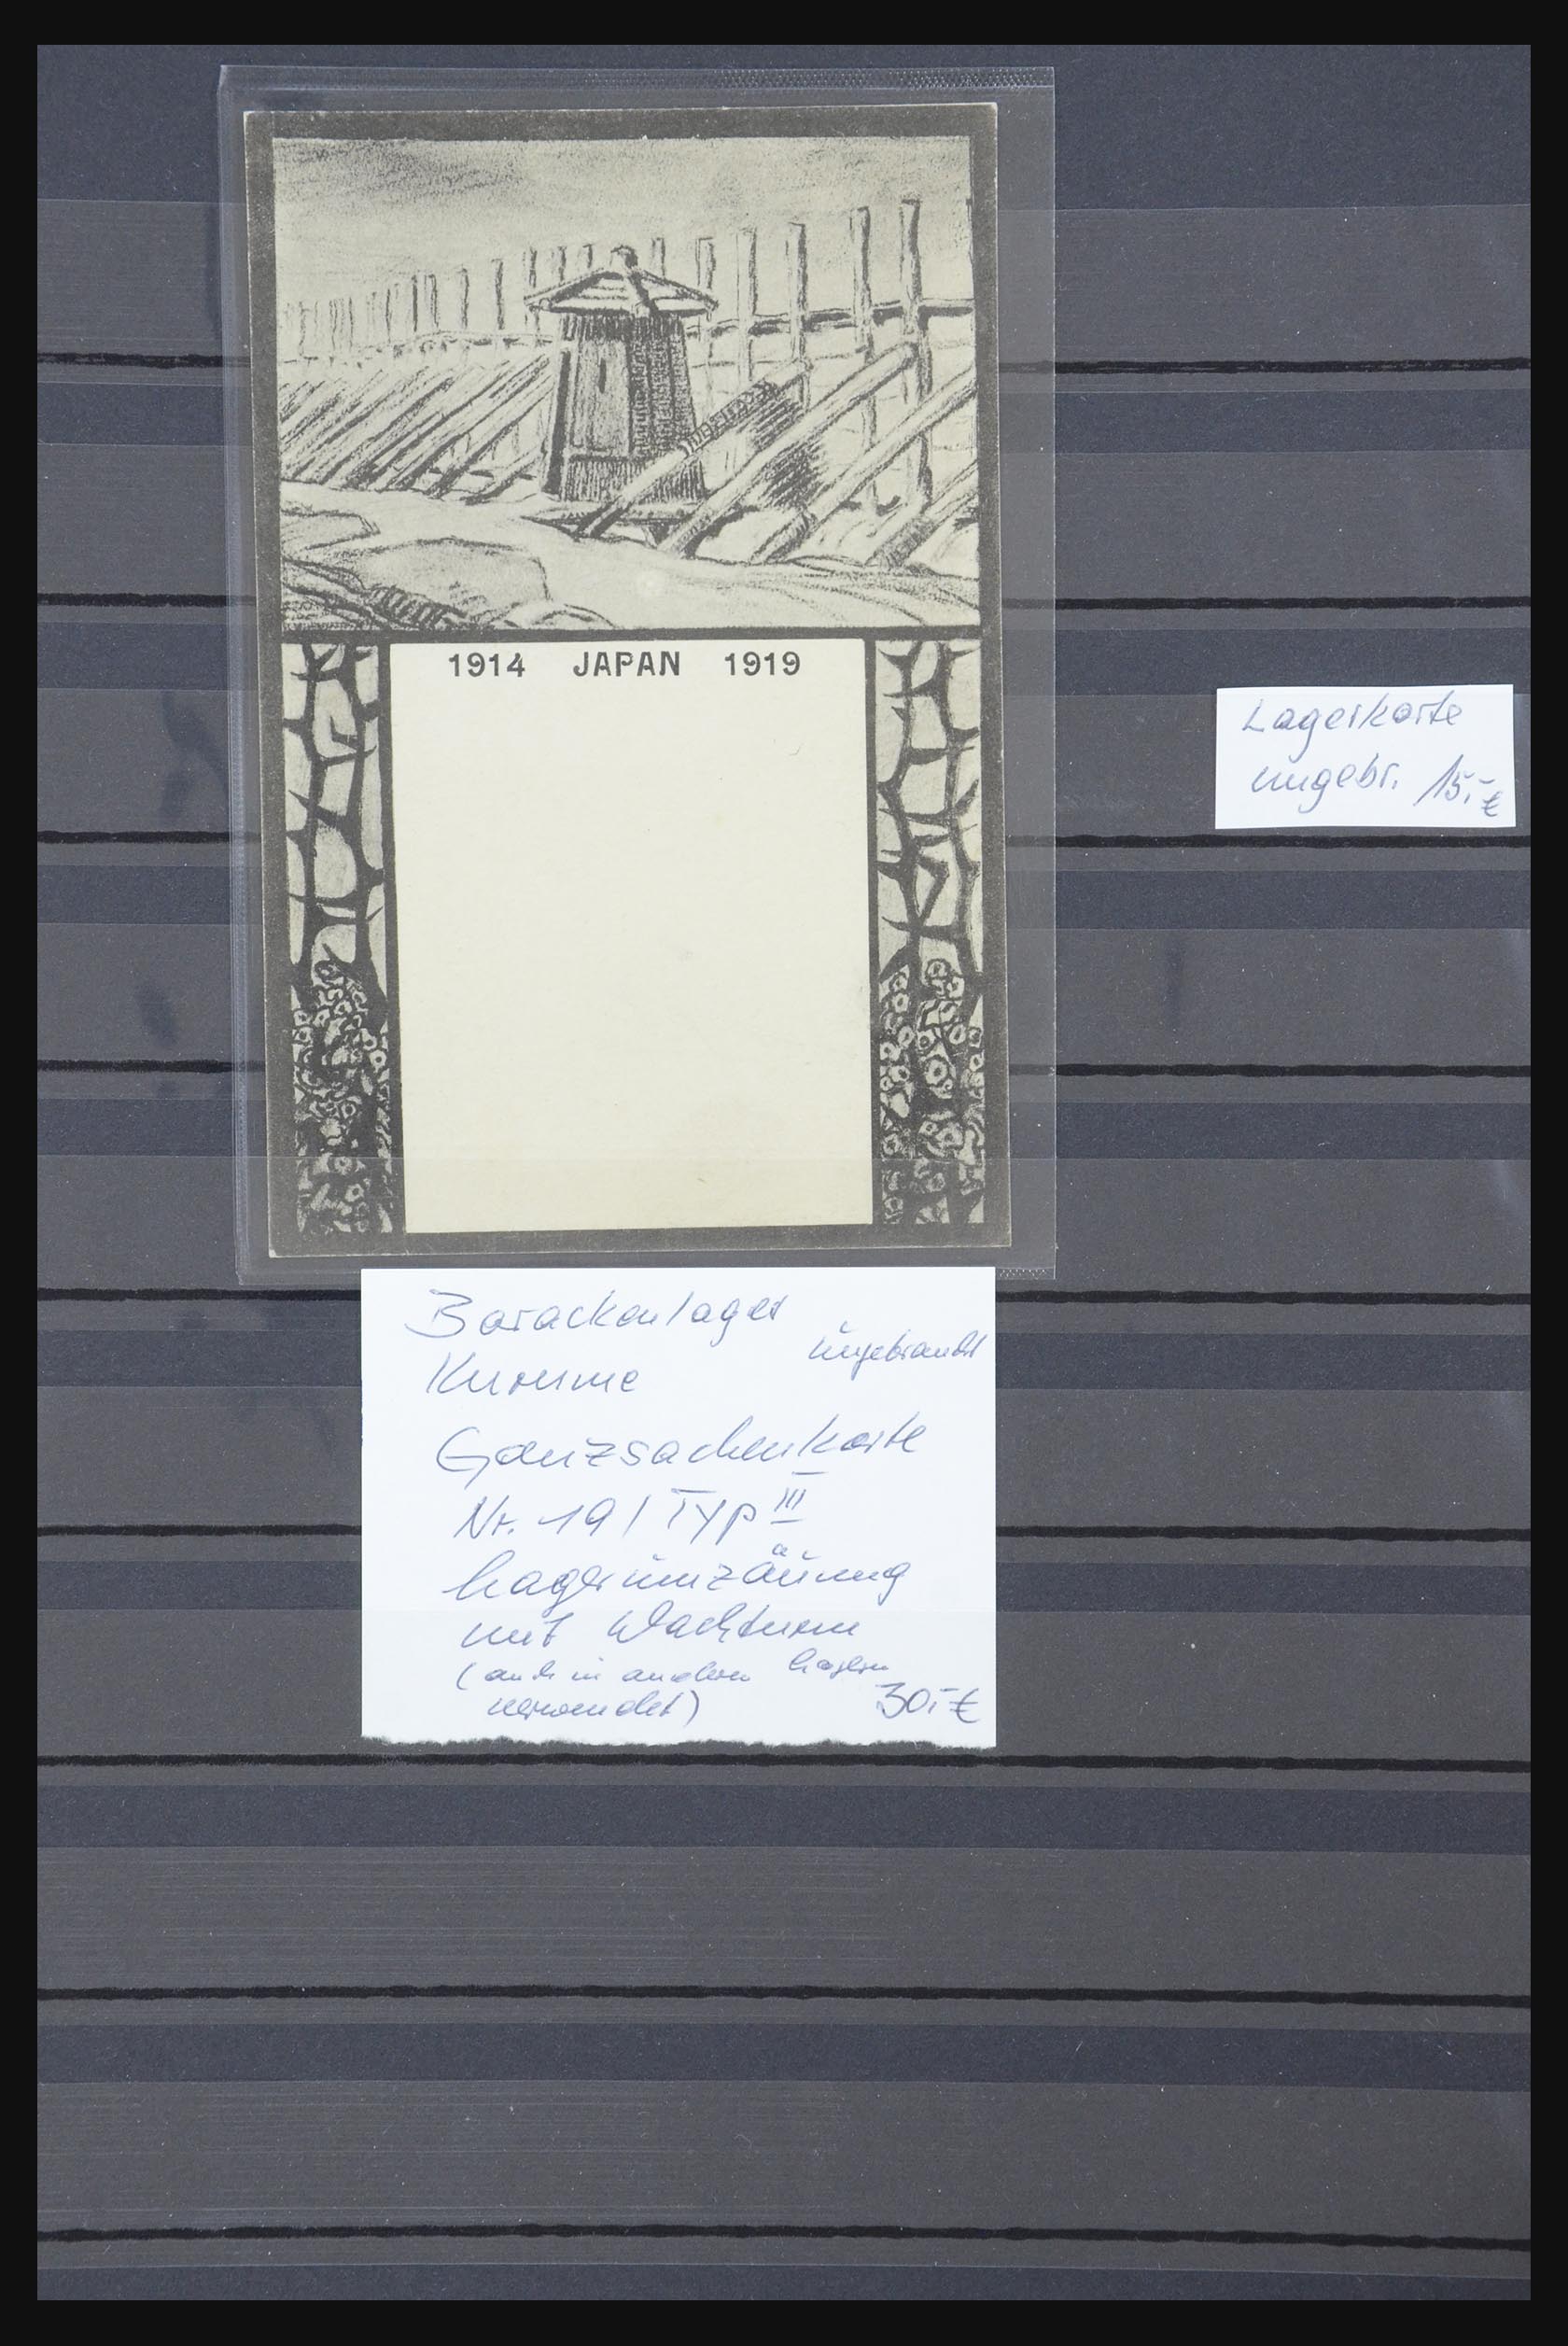 1914 JAPAN 1919
Lagerkarte
ungebr. 15,-€
Barackenlager
ungebraucht
Kurume
Ganzsachenkarte
Nr. 19 / Typ III
a
Lagerumzäunung
mit Wachturm
(auch in andern Lagern
verwendet) 30,-€